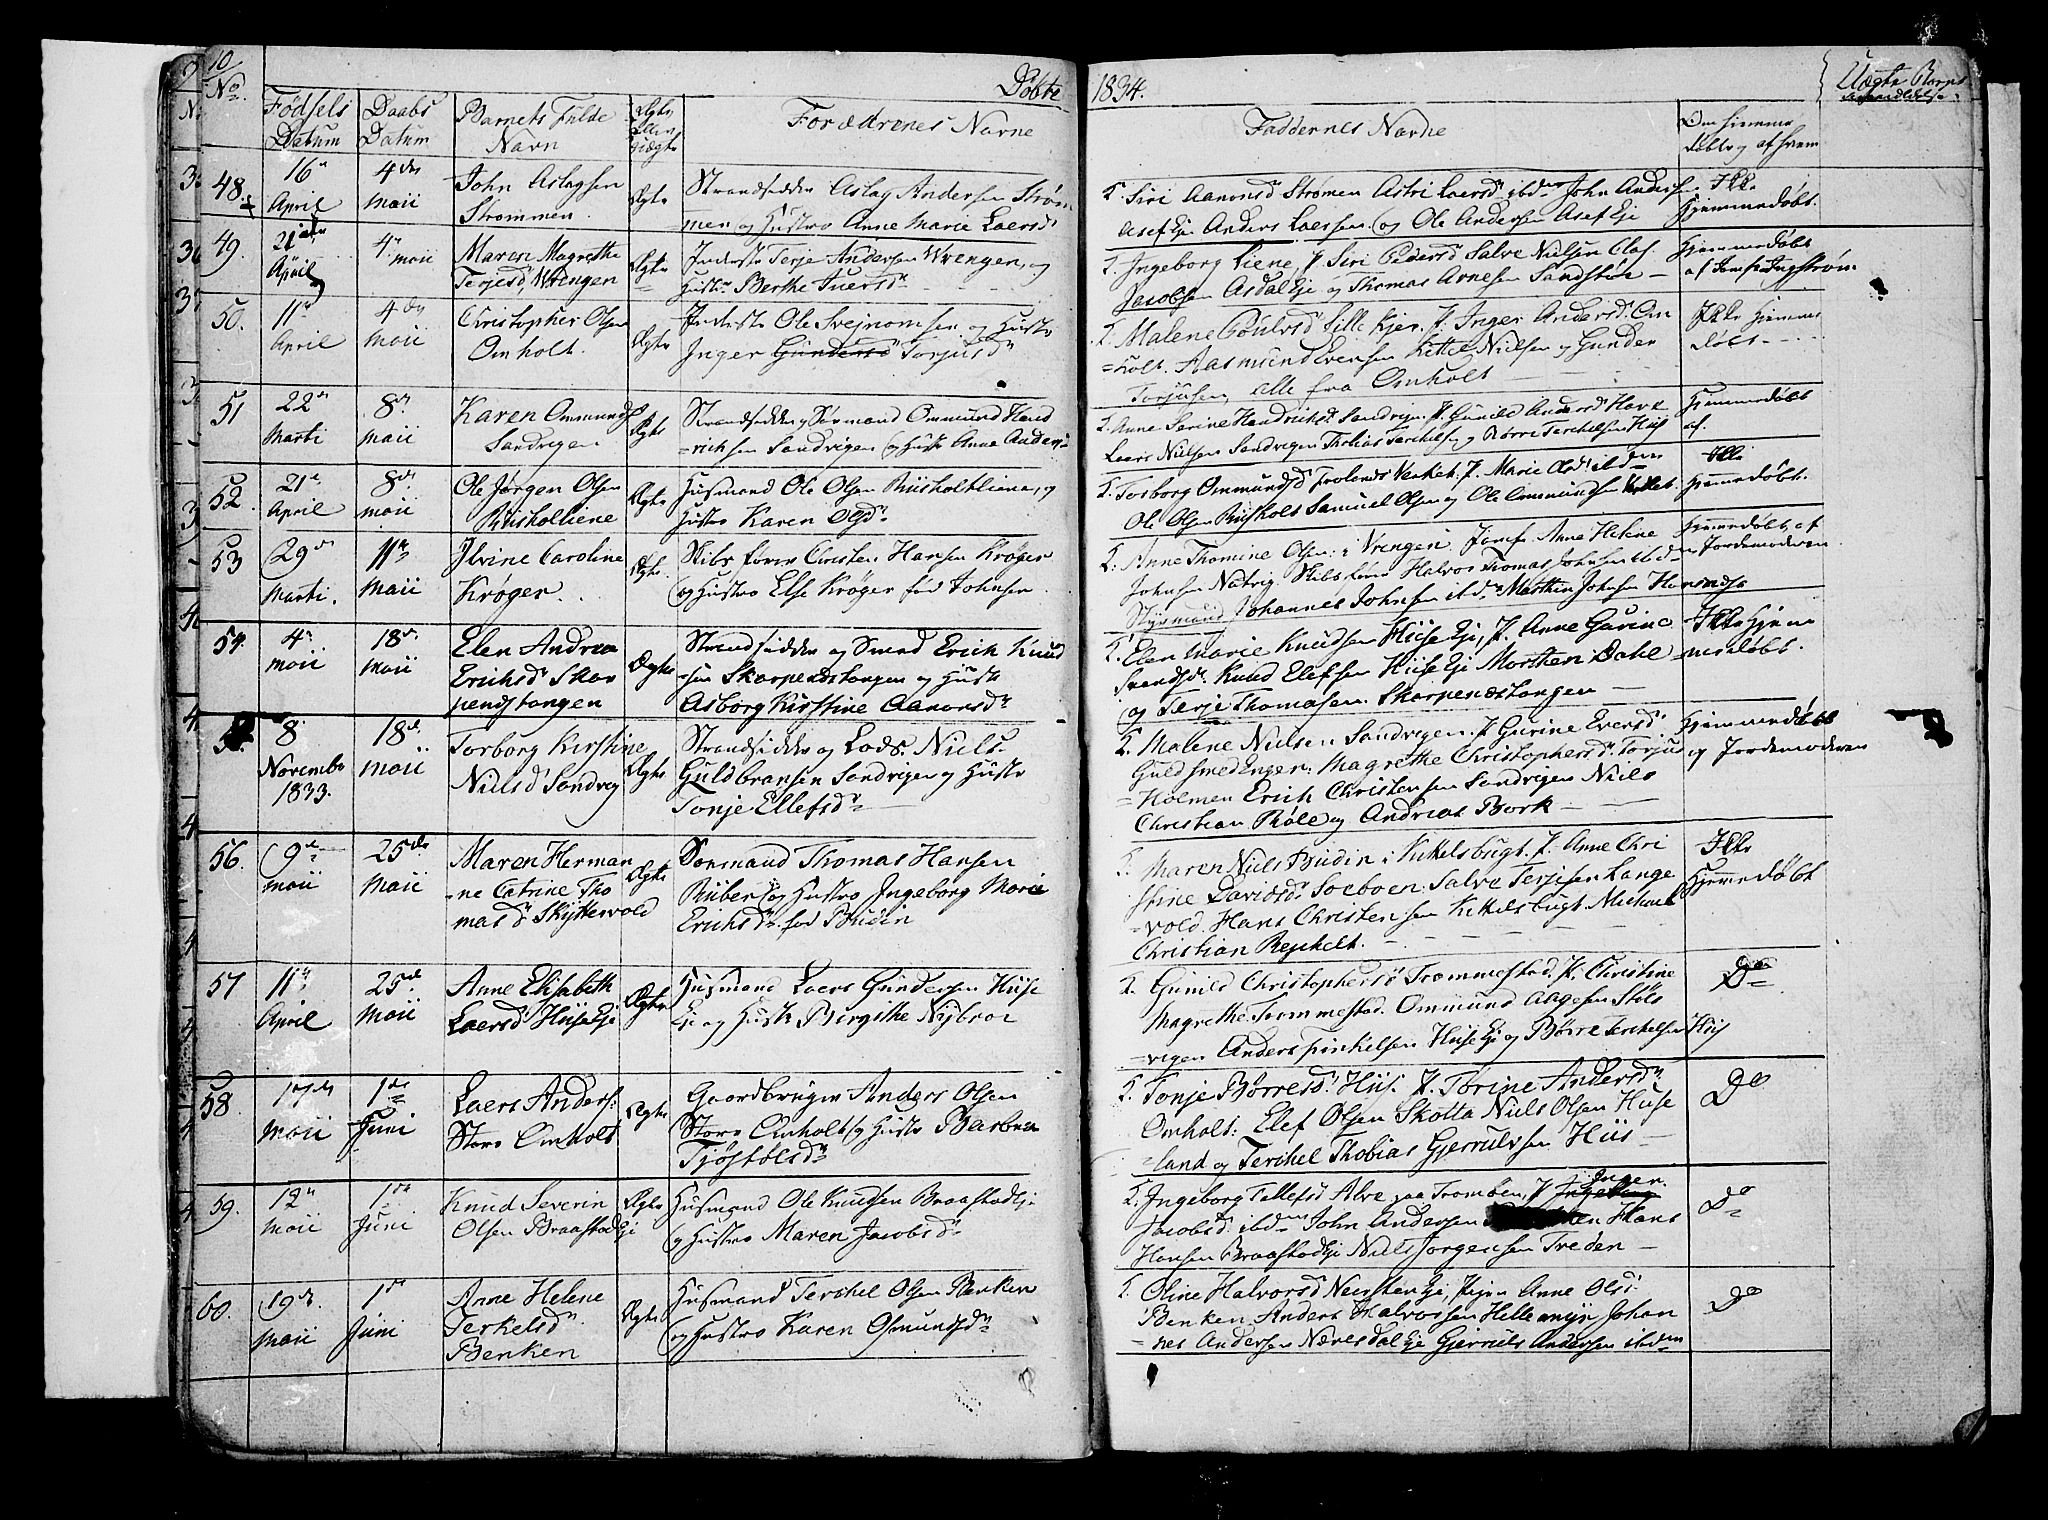 10
No
Døbte
1834.
Uægte Børns
Fødsels Datum
Daabs Datum
Barnets Fulde Navn
Ægte Eller Uægte
Forældrenes Navne
Faddernes Navne
Om hjemme døbt og af hvem
48.
16 April
4de Maii
John Aslagsen
Strømmen.
Ægte
Strandsidder Aslag Andersen Strøm-
men og Hustro Anne Marie Laersd
T. Siri Aanonsd Strømen Astri Laersd ibd John Andersen
Asef Eje Anders Laersen og Ole Andersen Asef Eje
Ikke
hjemmedøbt.
49.
21 April
4 Maii
Maren Magrethe
Terjesd Wrengen
Ægte
Inderste Terje Andersen Wrengen, og
Hust Berthe Iversd
T. Ingeborg Liene, P. Siri Pedersd Salve Nielsen
Jacobsen Asdal Eje og Thomas Arnesen Sandstøe
hjemmedøbt
af Jomf. Ingstrøm
50.
11 April
4de Maii
Christopher Olsen
Omholt.
Ægte
Inderste Ole Svejnomsen og Hustro
Inger Gundersd Torjusd
T. Malene Poulsd Lille Kjer. P. Inger Andersd Om
=holt. Aasmund Evensen Kittel Nielsen og Gunder
Torjusen alle fra Omholt
Ikke hjemme
døbt
51
22 Marti
8de Maii
Karen Ommundsd
Sandvigen
Ægte
Strandsidder og Sømand Ommund Hend
=richsen Sandvigen og Hust Anna Anders
T. Anne Serine Hendrichsd Sandvign P. Gunild Andersd Have
Laers Nielsen Sandvigen Thobias Terchelsen og Børre Terchelsen Hiis
hjemmedøbt
af.
52.
21 April
8de Maii
Ole Jørgen Olsen
Riisholtliene
Ægte
Husmand Ole Olsen Riisholtliene, og
Hustro Karen Olsd
T. Torborg Ommundsd Frolands Verket, P. Marie Olsd ibd
Ole Olsen Riisholt Samuel Olsen og Ole Ommundsen Verket.
Ikke
hjemmedøbt.
53
29 Marti.
11 Maii
Ilvine Caroline
Krøger.
Ægte.
Skibsfører Christen Hansen Krøger
og Hustro Else Krøger fød Johnsen
T. Anne Thomine Olsen i Vrengen. Jomf. Anne Helene
Johnsen Natvig Skibsfører Halvor Thomas Johnsen ibd
Styrmand Johannes Johnsen ibd. Mathin Johnsen
hjemmedøbt af
Jordemoderen.
54.
4 Maii
18 Maii
Elen Andrea
Erichsd Skar
pendstangen
Ægte
Strandsidder og Smed Erich Knud
=sen Skarpenstangen og Hust
Asborg Kirstine Aanonsd
T. Elen Marie Knudsen Hiise Eje, P. Anne Gurine
Svendsd Knud Elefsen Hiise Eje Morthen Dahl
og Terje Thomasen Skarpenæstangen
Ikke hjem
=medøbt.
8 November 1833.
18 Maii
Torborg Kirstine
Nielsd Sandvig
Ægte
Strandsidder og Lods. Niels
Guldbransen Sandvigen og Hustro
Tonje Ellefsd
T. Malene Nielsen Sandvigen. P. Gurine Eversd
Guldsmed Enger. Magrethe Christophersd Torjus
=Holmen Erich Christensen Sandvigen Niels
Christian og Andreas Bork
hjemmedøbt
og Jordemoderen
56.
9 Maii
25de Maii
Maren Herman
=ne Catrine Tho
masd Skyttevold
Ægte
Sømand Thomas Hansen
Riiber og Hustro Ingeborg Marie
Erichsd fød Budin
T. Maren Niels Budin i Kittelsbugt. P. Anne Chri
stine Davidsd Soeboen Salve Terjesen Lange
=vold. Hans Christensen Kittelsbugt. Michael
Christian
Ikke
hjemmedøbt
57
11 April
25 Maii
Anne Elisabeth
Laersd Hiise Eje
Ægte
Husmand Laers Gundersen Hiise
Eje og Hust Birgithe Nybroe
T. Gunild Christophersd Trommestad. P. Christine
Magrethe Trommestad. Ommund Aagesen Støls
=vigen Anders Finkelsen Hiise Eje og Børre Terchelsen Hiis
Do
58
17 Maii
1 Juni
Laers Anders:
Store Omholt
Ægte
Gaardbruger Anders Olsen
Store Omholt og Hustr Barbroe
Tjøstølsd
T. Tonje Børresd Hiis. P. Torine Andersd
Omholt. Elef Olsen Skotta Niels Olsen Huse
=land og Terchel Thobias Gjerrulvsen Hiis
Do
59.
12 Maii
1 Juni
Knud Severin
Olsen Braastad Eje
Ægte
Husmand Ole Knudsen Braastad Eje
og Hustro Maren Jacobsd
T. Ingeborg Tellefsd Alve paa Tromøen, P. Ingeborg Inger
Jacobsd ibd John Andersen Hans
Hansen Braastad Eje Niels Jørgensen Treden
Do
60.
19 Maii
1 Juni
Anne Helene
Terkelsd
Benken
Ægte
Husmand Terchel Olsen Benken
og Hustro Karen Osmundsd
T. Oline Halvorsd Neersten Eje, Pigen Anne Olsd
Benken Anders Halvorsen Hellemyr Johan
nes Andersen Næresdal Eje Gjerruls Andersen ibd
Do